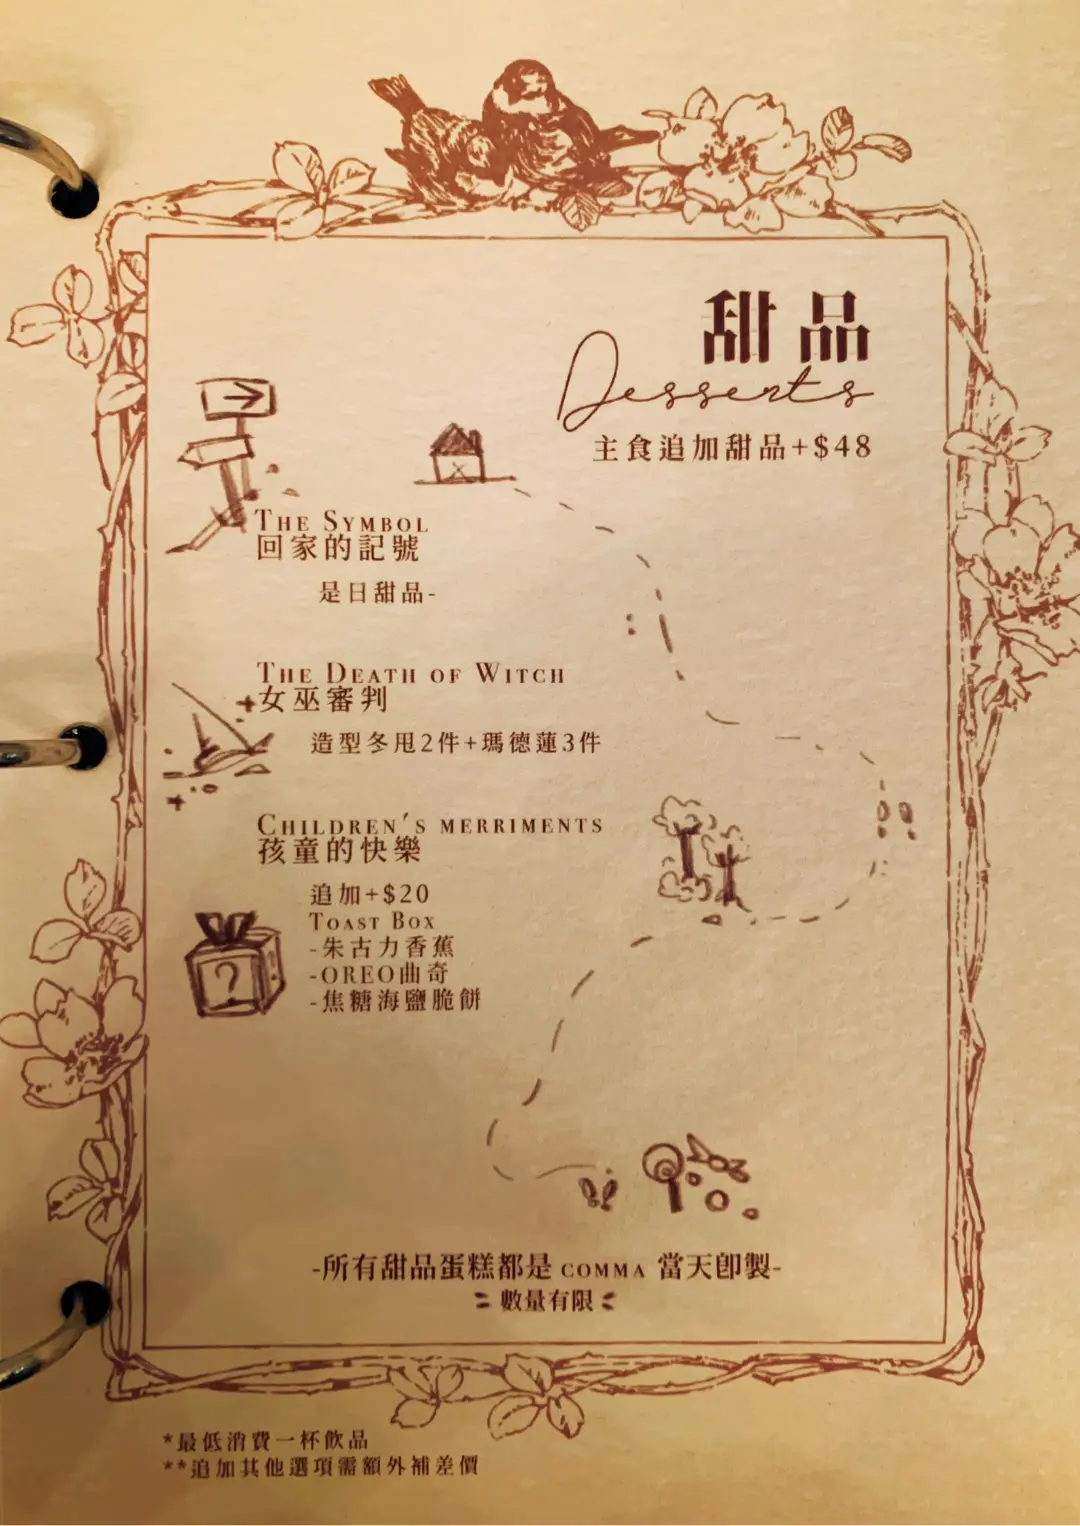 甜品
Desserts
主食追加甜品+$48
THE SYMBOL
回家的記號
是日甜品-
THE DEATH OF WITCH
女巫審判
造型冬甩2件+瑪德蓮3件
CHILDREN'S MERRIMENTS
孩童的快樂
追加+$20
TOAST BOX
-朱古力香蕉
-OREO曲奇
-焦糖海鹽脆餅
?
-所有甜品蛋糕都是 COMMA 當天即製-
數量有限
*最低消費一杯飲品
**追加其他選項需額外補差價